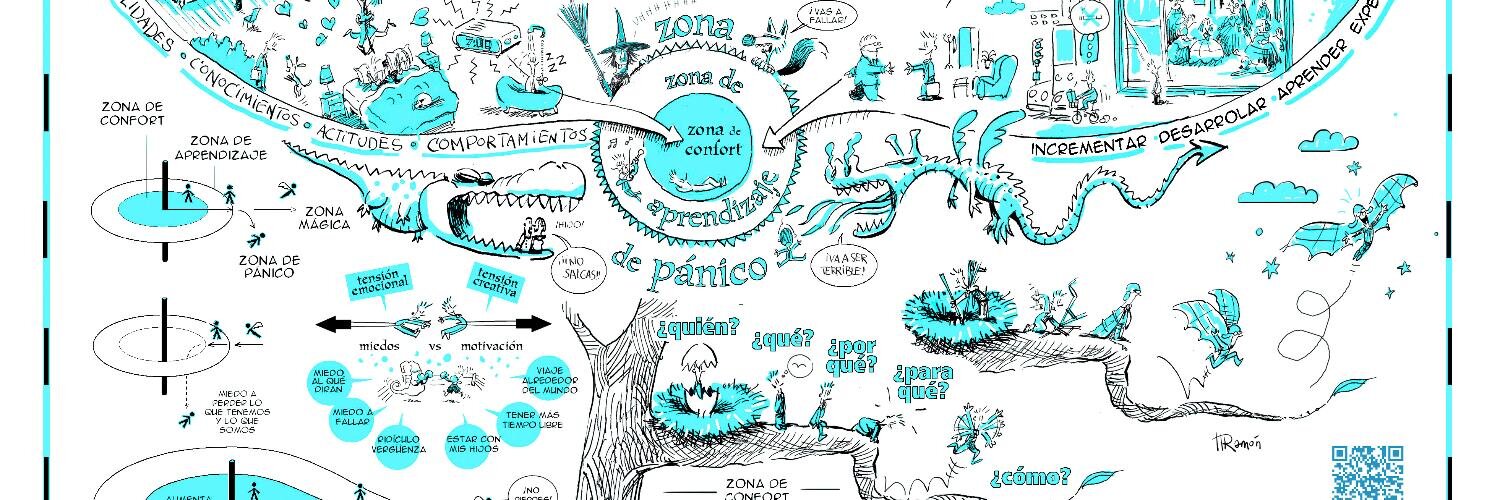 ¡VAS A
FALLAR!
zona
zona de
aprendizaje
zona de
confort
de pánico
LIDADES • CONOCIMIENTOS • ACTITUDES • COMPORTAMIENTOS
INCREMENTAR • DESARROLAR • APRENDER
ZZ
ZONA DE
CONFORT
ZONA DE
APRENDIZAJE
ZONA
MÁGICA
ZONA DE
PÁNICO
¡HIJO!
¡¡¡NO
SALGAS!!
¡VA A SER
TERRIBLE!
tensión
emocional
tensión
creativa
miedos vs motivación
MIEDO
AL QUÉ
DIRÁN
MIEDO A
FALLAR
RIDÍCULO
VERGÜENZA
ESTAR CON
MIS HIJOS
TENER MÁS
TIEMPO LIBRE
VIAJE
ALREDEDOR
DEL MUNDO
MIEDO A
PERDER LO
QUE TENEMOS
Y LO QUE
SOMOS
¿quién?
¿qué?
¿por
qué?
¿para
qué?
¿cómo?
ZONA DE
CONFORT
AUMENTA
¡NO